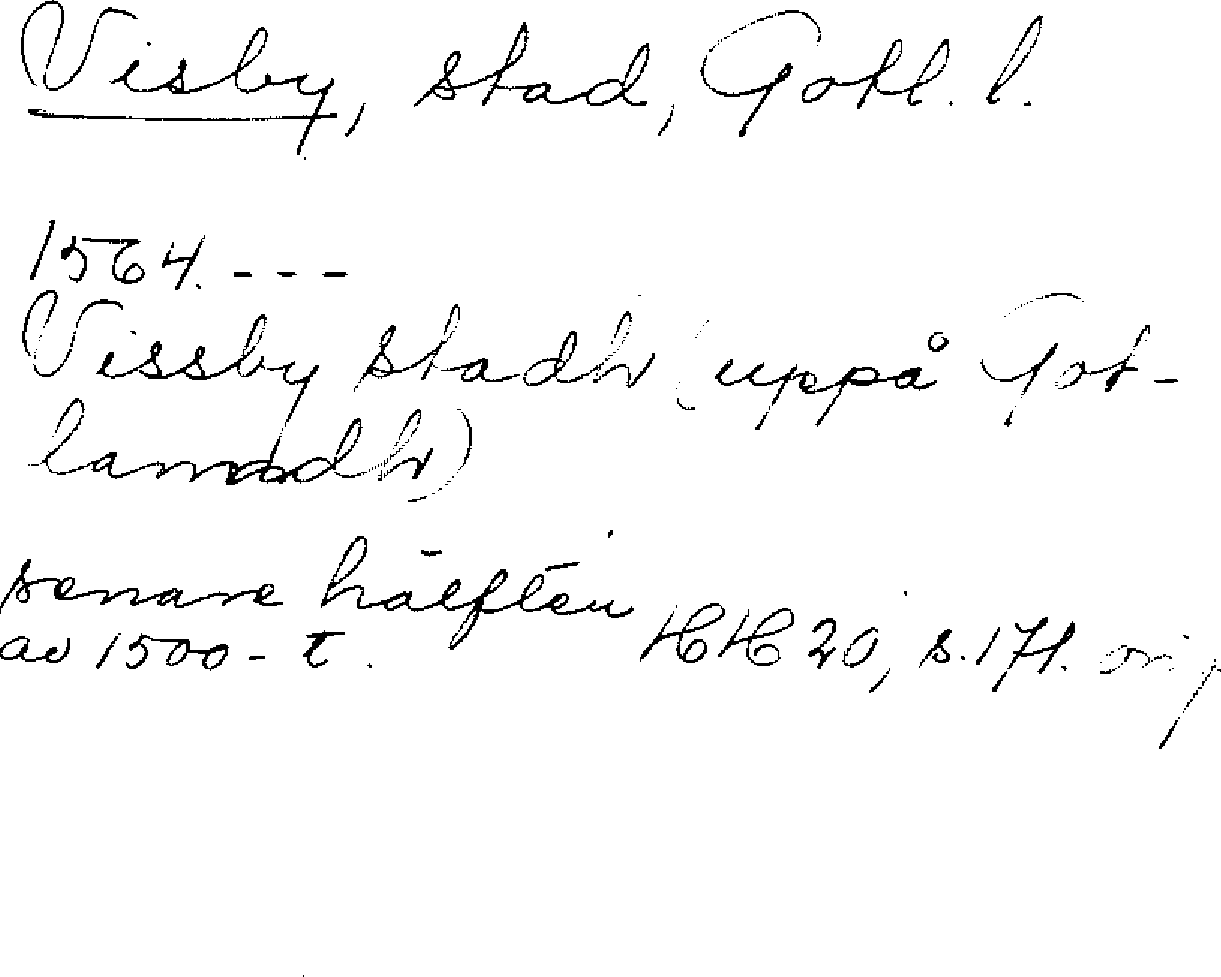 Visby, stad, Gotl. l.
1564. - - -
Vissby stadh (uppå Got-
lanndh)
senare hälften
av 1500-t.
HH 20, s. 171. orig